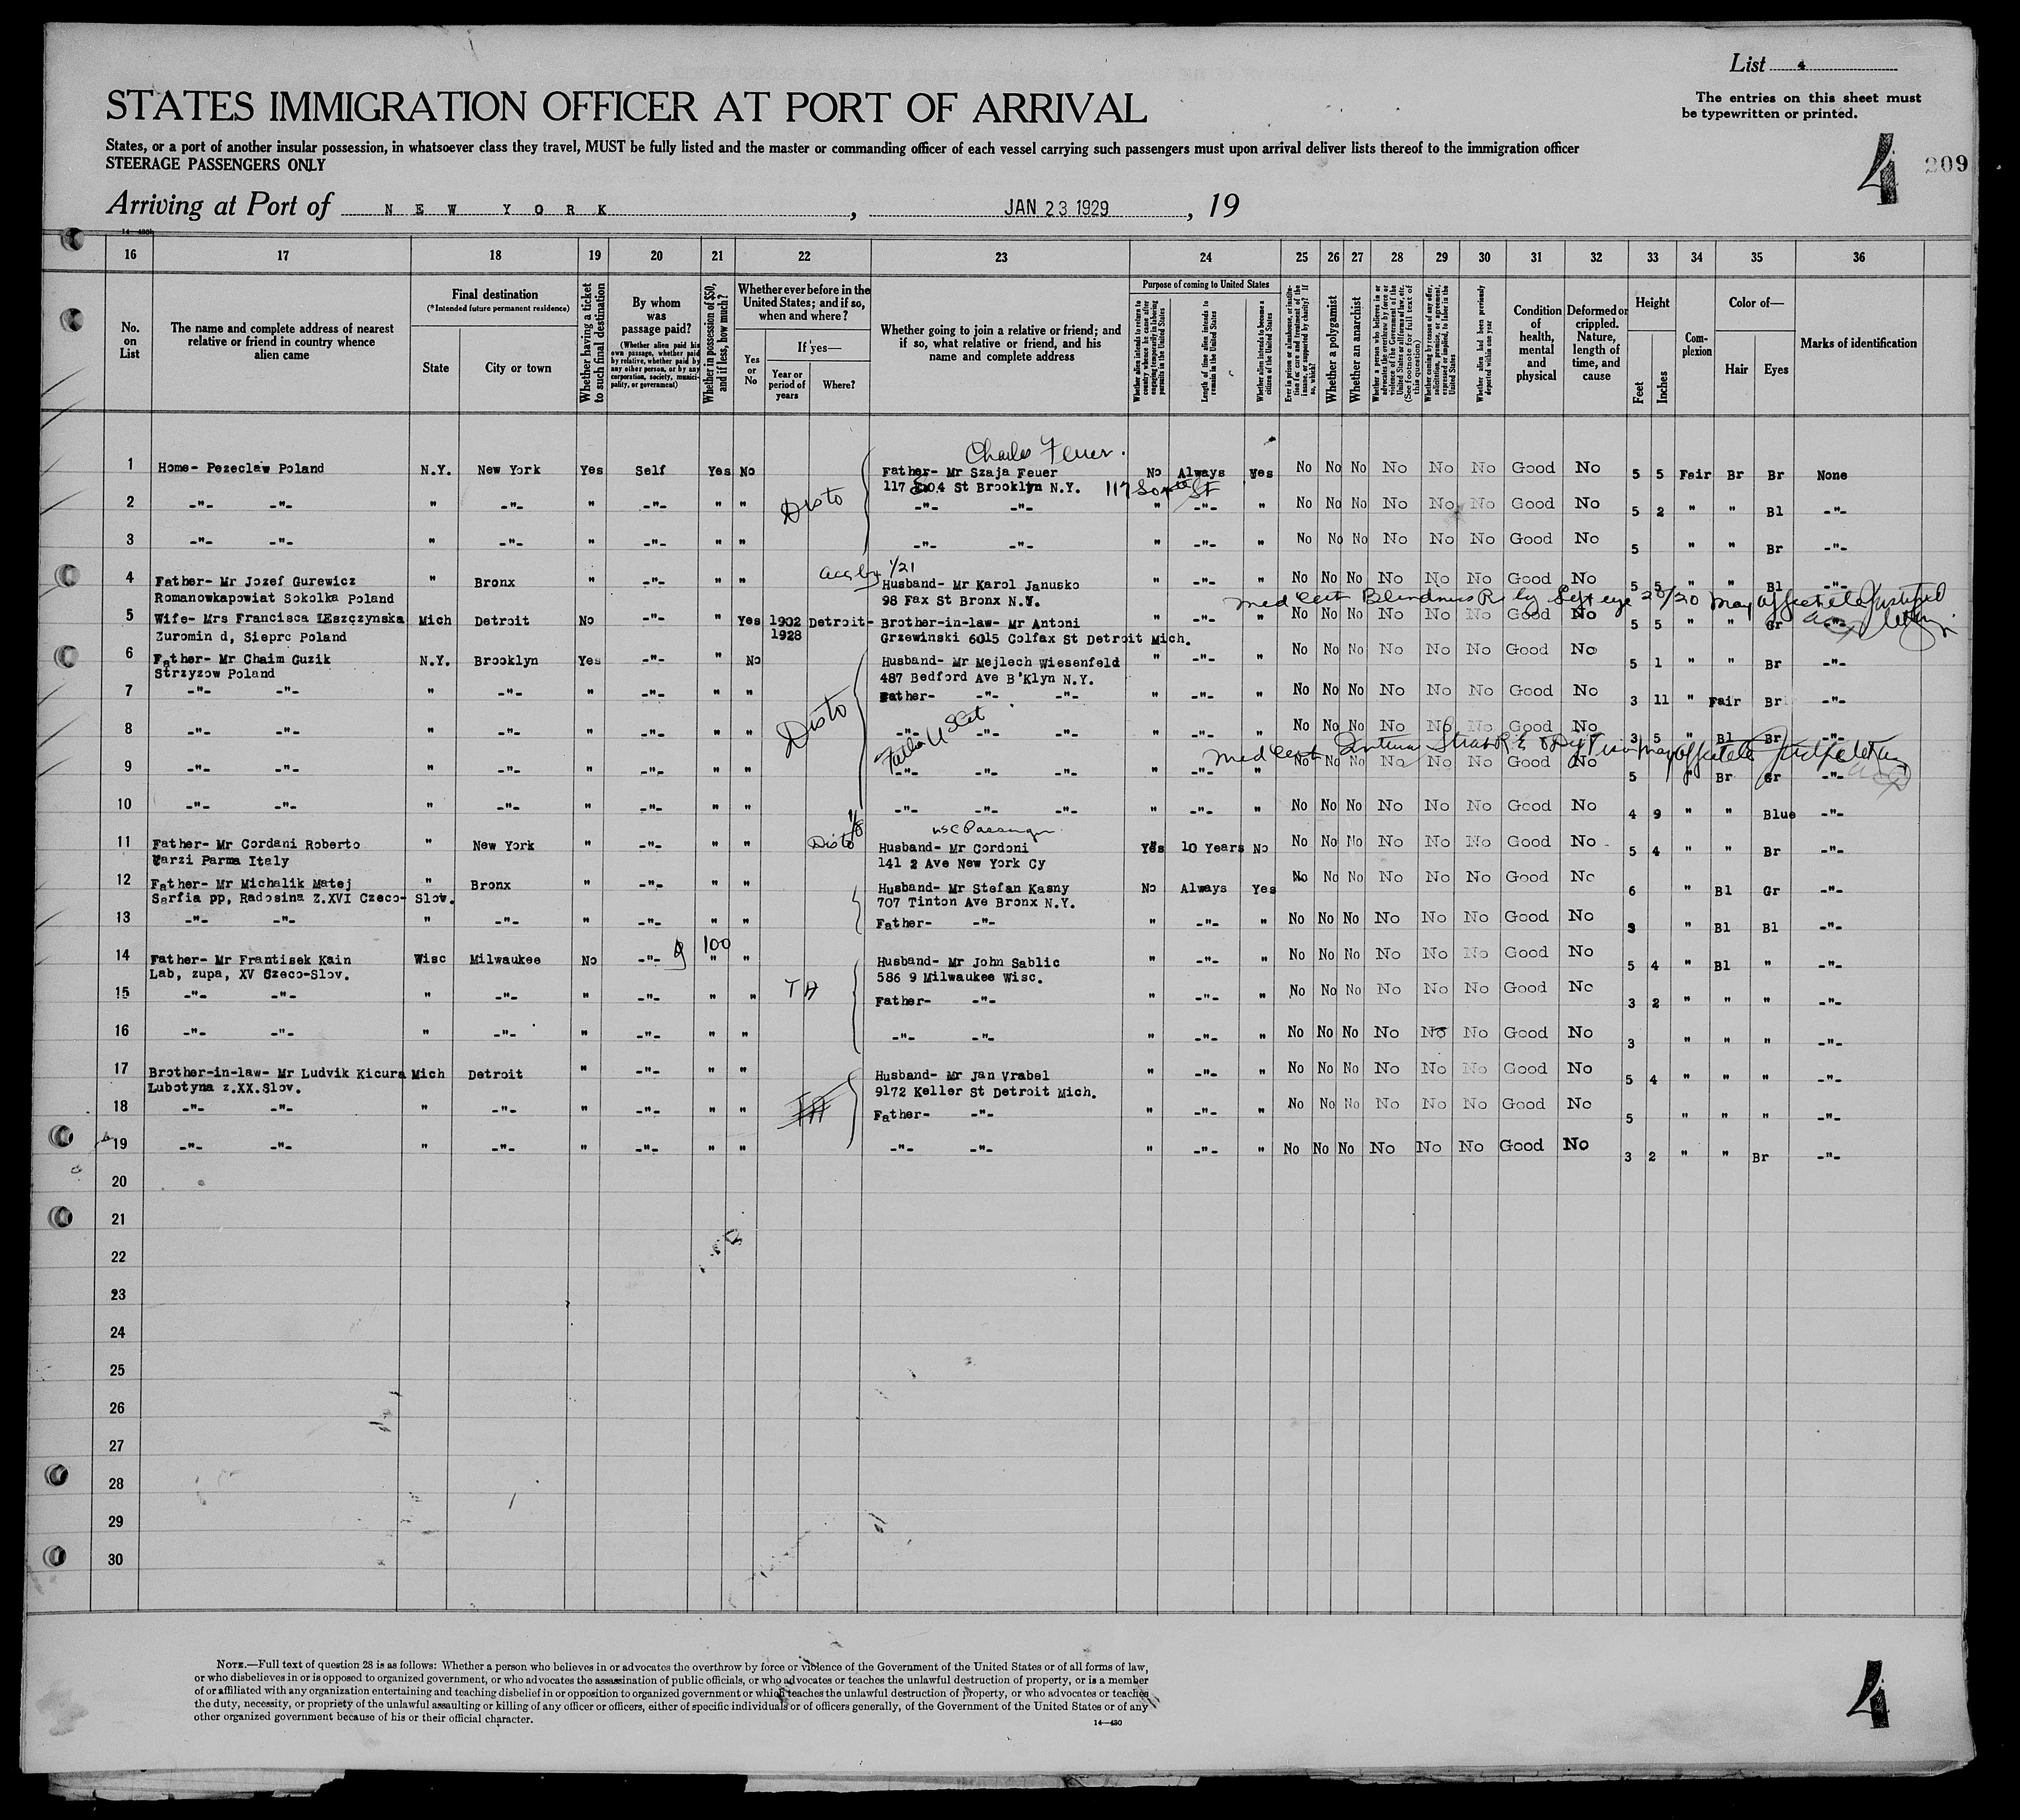 List 4
STATES IMMIGRATION OFFICER AT PORT OF ARRIVAL
The entries on this sheet must
be typewritten or printed.
States, or a port of another insular possession, in whatsoever class they travel, MUST be fully listed and the master or commanding officer of each vessel carrying such passengers must upon arrival deliver lists thereof to the immigration officer
STEERAGE PASSENGERS ONLY
4 209
Arriving at Port of NEW YORK, JAN 23 1929, 19
16 17 18 19 20 21 22 23 24 25 26 27 28 29 30 31 32 33 34 35 36
No. on List
The name and complete address of nearest relative or friend in country whence alien came
Final destination
(*Intended future permanent residence)
State
City or town
Whether having a ticket to such final destination
By whom was passage paid?
(Whether alien paid his own passage, whether paid by relative, whether paid by any other person, or by any corporation, society, municipality, or government)
Whether in possession of $50, and if less, how much?
Whether ever before in the United States; and if so, when and where?
Yes or No
If yes—
Year or period of years
Where?
Whether going to join a relative or friend; and if so, what relative or friend, and his name and complete address
Purpose of coming to United States
Whether alien intends to return to country whence he came after engaging temporarily in laboring pursuits in the United States
Length of time alien intends to remain in the United States
Whether alien intends to become a citizen of the United States
Ever in prison or almshouse, or institution for care and treatment of the insane, or supported by charity? If so, which?
Whether a polygamist
Whether an anarchist
Whether a person who believes in or advocates the overthrow by force or violence of the Government of the United States or all forms of law, etc. (See footnote for full text of this question)
Whether coming by reason of any offer, solicitation, promise, or agreement, expressed or implied, to labor in the United States
Whether alien had been previously deported within one year
Condition of health, mental and physical
Deformed or crippled. Nature, length of time, and cause
Height
Feet
Inches
Complexion
Color of—
Hair
Eyes
Marks of identification
Charles Feuer.
1 Home- Pezeclaw Poland N.Y. New York Yes Self Yes No Father- Mr Szaja Feuer No Always Yes No No No No No No Good No 5 5 Fair Br Br None
117 So 4 St Brooklyn N.Y. 117 So 4th St
2 -"- -"- " -"- " -"- " " Disto -"- -"- " -"- " No No No No No No Good No 5 2 " " Bl -"-
3 -"- -"- " -"- " -"- " " -"- -"- " -"- " No No No No No No Good No 5 " " Br -"-
1/21
4 Father- Mr Jozef Gurewicz " Bronx " -"- " " Husband- Mr Karol Janusko " -"- " No No No No No No Good No 5 5 " " Bl -"-
Romanowkapowiat Sokolka Poland 98 Fax St Bronx N.Y.
Med Cert Blindness R by Left eye 20/20 may affect
5 Wife- Mrs Francisca LEszczynska Mich Detroit No -"- " Yes 1902 Detroit- Brother-in-law- Mr Antoni " -"- " No No No No No No Good No 5 5 " " Gr -"-
Zuromin d, Sieprc Poland 1928 Grzewinski 6015 Colfax St Detroit Mich.
6 Father- Mr Chaim Guzik N.Y. Brooklyn Yes -"- " No Husband- Mr Mejlech Wiesenfeld " -"- " No No No No No No Good No 5 1 " " Br -"-
Strzyzow Poland 487 Bedford Ave B'Klyn N.Y.
7 -"- -"- " -"- " -"- " " Father- -"- -"- " -"- " No No No No No No Good No 3 11 " Fair Br -"-
8 -"- -"- " -"- " -"- " " Disto -"- -"- -"- No No No No No No Good No 3 5 " Bl Br -"-
Med Cert
9 -"- -"- " -"- " -"- " " -"- -"- -"- " -"- " No No No No No No Good No 5 " Br Gr -"-
10 -"- -"- " -"- " -"- " " -"- -"- -"- " -"- " No No No No No No Good No 4 9 " " Blue -"-
usc Passenger
11 Father- Mr Cordani Roberto " New York " -"- " " Disto Husband- Mr Cordoni Yes 10 Years No No No No No No No Good No 5 4 " " Br -"-
Varzi Parma Italy 141 2 Ave New York Cy
12 Father- Mr Michalik Matej " Bronx " -"- " " Husband- Mr Stefan Kasny No Always Yes No No No No No No Good No 6 " Bl Gr -"-
Sarfia pp, Radosina Z.XVI Czeco- Slov. 707 Tinton Ave Bronx N.Y.
13 -"- -"- " -"- " -"- " " Father- -"- " -"- " No No No No No No Good No 3 " Bl Bl -"-
100
14 Father- Mr Frantisek Kain Wisc Milwaukee No -"- " " Husband- Mr John Sablic " -"- " No No No No No No Good No 5 4 " Bl " -"-
Lab, zupa, XV Czeco-Slov. 586 9 Milwaukee Wisc.
15 -"- -"- " -"- " -"- " " TA Father- -"- " -"- " No No No No No No Good No 3 2 " " " -"-
16 -"- -"- " -"- " -"- " " -"- -"- " -"- " No No No No No No Good No 3 " " " -"-
17 Brother-in-law- Mr Ludvik Kicura Mich Detroit " -"- " " Husband- Mr Jan Vrabel " -"- " No No No No No No Good No 5 4 " " " -"-
Lubotyna z.XX.Slov. 9172 Keller St Detroit Mich.
18 -"- -"- " -"- " -"- " " TA Father- -"- " -"- " No No No No No No Good No 5 " " " -"-
19 -"- -"- " -"- " -"- " " -"- -"- " -"- " No No No No No No Good No 3 2 " " Br -"-
20
21
22
23
24
25
26
27
28
29
30
NOTE.—Full text of question 28 is as follows: Whether a person who believes in or advocates the overthrow by force or violence of the Government of the United States or of all forms of law,
or who disbelieves in or is opposed to organized government, or who advocates the assassination of public officials, or who advocates or teaches the unlawful destruction of property, or is a member
of or affiliated with any organization entertaining and teaching disbelief in or opposition to organized government or which teaches the unlawful destruction of property, or who advocates or teaches
the duty, necessity, or propriety of the unlawful assaulting or killing of any officer or officers, either of specific individuals or of officers generally, of the Government of the United States or of any
other organized government because of his or their official character.
14—430
4